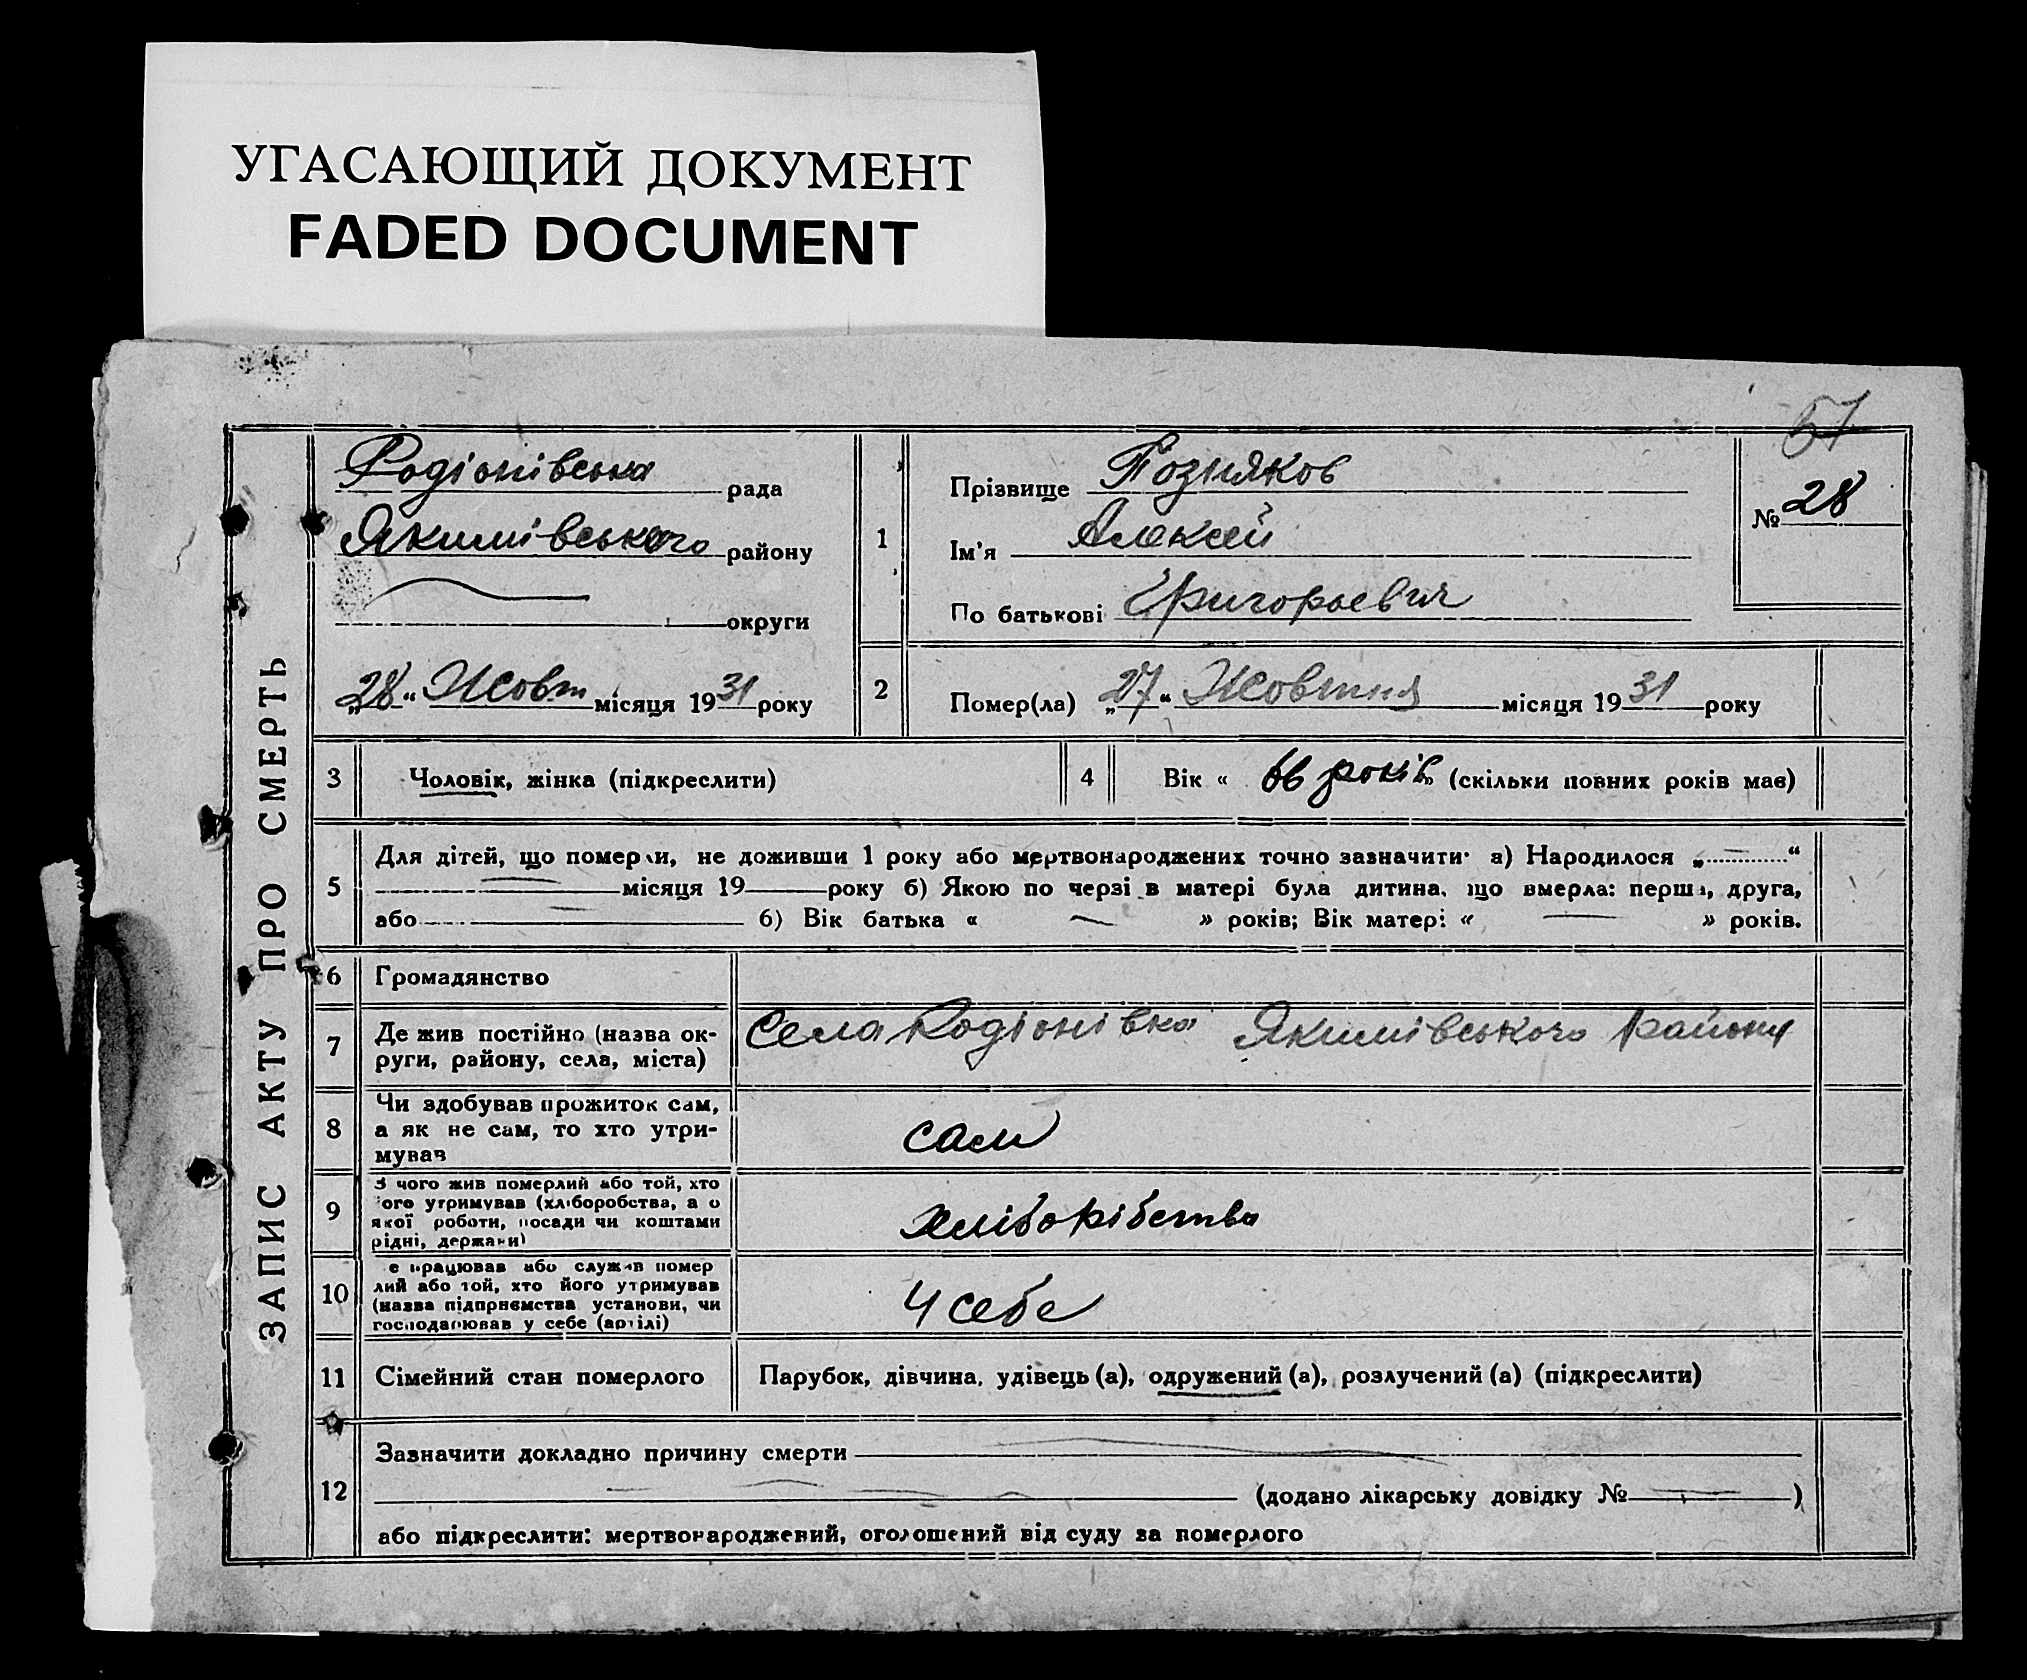 УГАСАЮЩИЙ ДОКУМЕНТ
FADED DOCUMENT
57
ЗАПИС АКТУ ПРО СМЕРТЬ
Родіонівська рада
Якимівського району
округи
„28“ Жовт місяця 1931 року
1
Прізвище Позняков
Ім'я Алексей
По батькові Григорьевич
№ 28
2
Помер(ла) „27“ Жовтня місяця 1931 року
3
Чоловік, жінка (підкреслити)
4
Вік « 66 років » (скільки повних років має)
5
Для дітей, що померли, не доживши 1 року або мертвонароджених точно зазначити· а) Народилося „ “
місяця 19 року б) Якою по черзі в матері була дитина, що вмерла: перша, друга,
або 6) Вік батька « » років; Вік матері: « » років.
6
Громадянство
7
Де жив постійно (назва ок-
руги, району, села, міста)
Села Родіонівка Якимівського району
8
Чи здобував прожиток сам,
а як не сам, то хто утри-
мував
сам
9
З чого жив померлий або той, хто
ого утримував (хліборобства, а о
якої роботи, посади чи коштами
рідні, держави)
хліборібства
10
е працював або служив помер
лий або той, хто його утримував
(назва підприємства установи, чи
господарював у себе (артілі)
У себе
11
Сімейний стан померлого
Парубок, дівчина, удівець (а), одружений (а), розлучений (а) (підкреслити)
12
Зазначити докладно причину смерти
(додано лікарську довідку № )
або підкреслити: мертвонароджений, оголошений від суду за померлого